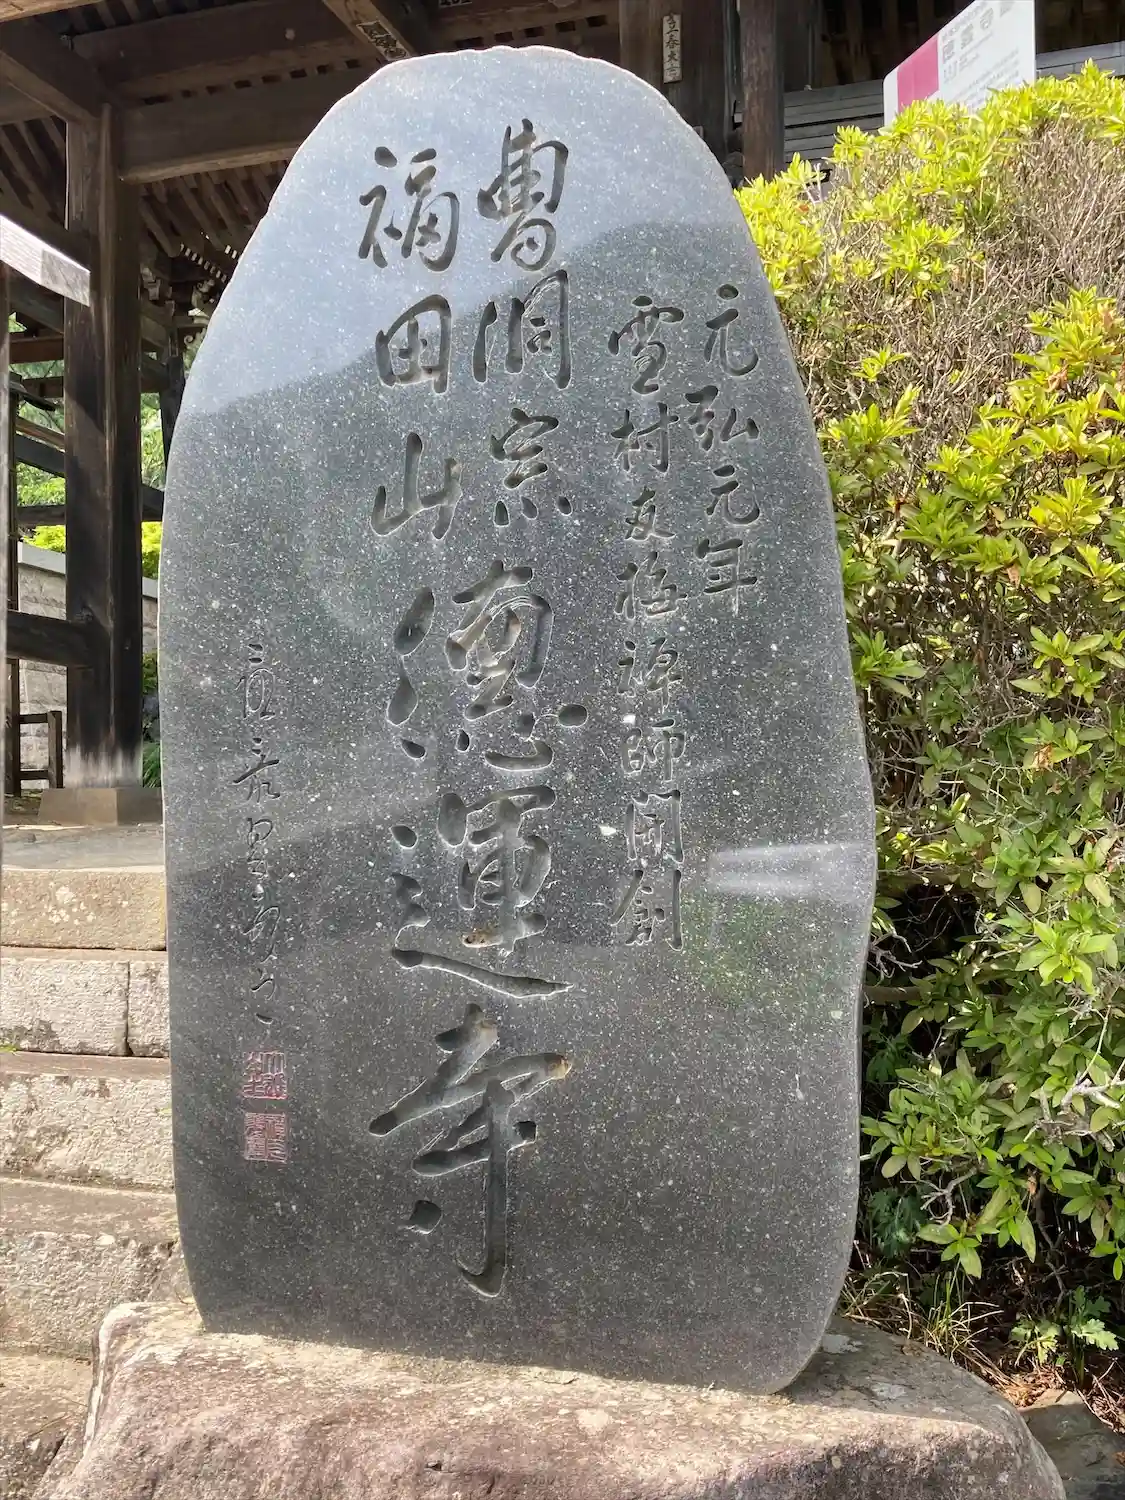 元弘元年
雪村友梅禅師開創
曹洞宗
福田山
德運寺
立春大吉